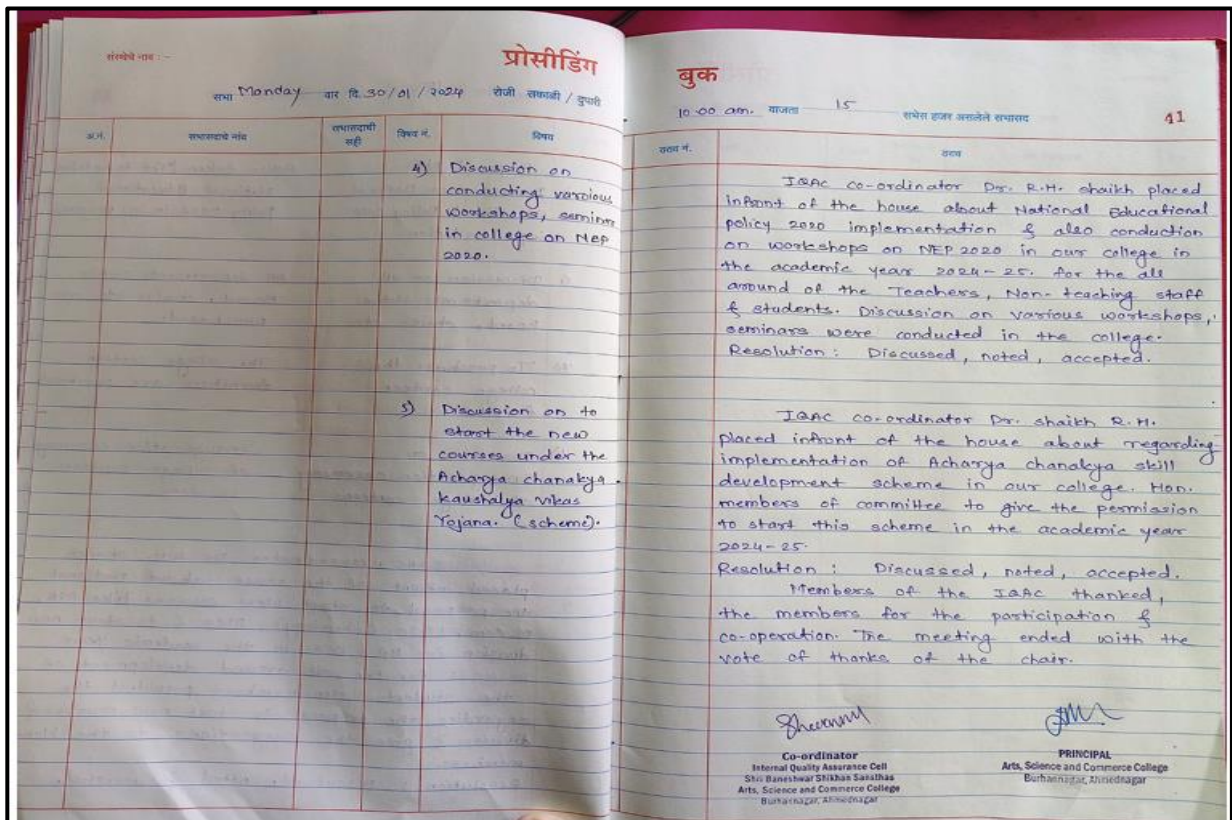 संस्थेचे नाव : -
प्रोसीडिंग
सभा Monday वार दि. 30/01/2024 रोजी सकाळी / दुपारी
अ.नं. सभासदाचे नांव सभासदाची सही विषय नं. विषय
4) Discussion on
conducting varoious
workshops, seminar
in college on NEP
2020.
5) Discussion on to
start the new
courses under the
Acharya chanakya
kaushalya vikas
Yojana. (scheme).
बुक
10.00 am. वाजता 15 सभेस हजर असलेले सभासद
41
ठराव नं. ठराव
IQAC co-ordinator Dr. R.H. shaikh placed
infront of the house about National Educational
policy 2020 implementation & also conduction
on workshops on NEP 2020 in our college in
the academic year 2024-25. for the all
around of the Teachers, Non-teaching staff
& students. Discussion on various workshops,
seminars were conducted in the college.
Resolution : Discussed, noted, accepted.
IQAC co-ordinator Dr. shaikh R.H.
placed infront of the house about regarding
implementation of Acharya chanakya skill
development scheme in our college. Hon.
members of committee to give the permission
to start this scheme in the academic year
2024-25.
Resolution : Discussed, noted, accepted.
Members of the IQAC thanked,
the members for the participation &
co-operation. The meeting ended with the
vote of thanks of the chair.
Co-ordinator
Internal Quality Assurance Cell
Shri Baneshwar Shikhan Sansthas
Arts, Science and Commerce College
Burhannagar, Ahmednagar
PRINCIPAL
Arts, Science and Commerce College
Burhannagar, Ahmednagar